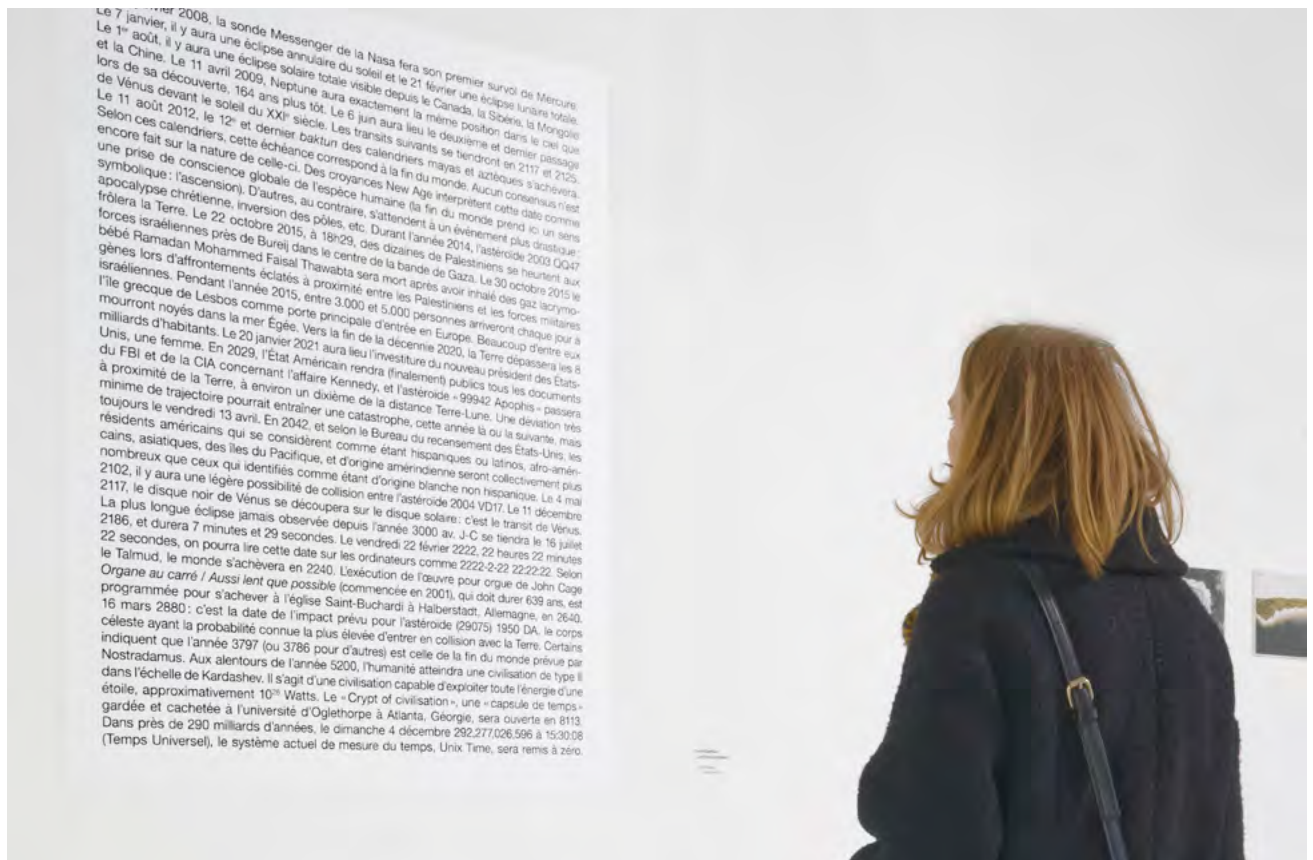 2008, la sonde Messenger de la Nasa fera son premier survol de Mercure.
Le 7 janvier, il y aura une éclipse annulaire du soleil et le 21 février une éclipse lunaire totale.
Le 1er août, il y aura une éclipse solaire totale visible depuis le Canada, la Sibérie, la Mongolie
et la Chine. Le 11 avril 2009, Neptune aura exactement la même position dans le ciel que
lors de sa découverte, 164 ans plus tôt. Le 6 juin aura lieu le deuxième et dernier passage
de Vénus devant le soleil du XXIe siècle. Les transits suivants se tiendront en 2117 et 2125.
Le 11 août 2012, le 12e et dernier baktun des calendriers mayas et aztèques s'achèvera.
Selon ces calendriers, cette échéance correspond à la fin du monde. Aucun consensus n'est
encore fait sur la nature de celle-ci. Des croyances New Age interprètent cette date comme
une prise de conscience globale de l'espèce humaine (la fin du monde prend ici un sens
symbolique : l'ascension). D'autres, au contraire, s'attendent à un évènement plus drastique :
apocalypse chrétienne, inversion des pôles, etc. Durant l'année 2014, l'astéroïde 2003 QQ47
frôlera la Terre. Le 22 octobre 2015, à 18h29, des dizaines de Palestiniens se heurtent aux
forces israéliennes près de Bureij dans le centre de la bande de Gaza. Le 30 octobre 2015 le
bébé Ramadan Mohammed Faisal Thawabta sera mort après avoir inhalé des gaz lacrymo-
gènes lors d'affrontements éclatés à proximité entre les Palestiniens et les forces militaires
israéliennes. Pendant l'année 2015, entre 3.000 et 5.000 personnes arriveront chaque jour à
l'île grecque de Lesbos comme porte principale d'entrée en Europe. Beaucoup d'entre eux
mourront noyés dans la mer Égée. Vers la fin de la décennie 2020, la Terre dépassera les 8
milliards d'habitants. Le 20 janvier 2021 aura lieu l'investiture du nouveau président des États-
Unis, une femme. En 2029, l'État Américain rendra (finalement) publics tous les documents
du FBI et de la CIA concernant l'affaire Kennedy, et l'astéroïde « 99942 Apophis » passera
à proximité de la Terre, à environ un dixième de la distance Terre-Lune. Une déviation très
minime de trajectoire pourrait entraîner une catastrophe, cette année là ou la suivante, mais
toujours le vendredi 13 avril. En 2042, et selon le Bureau du recensement des États-Unis, les
résidents américains qui se considèrent comme étant hispaniques ou latinos, afro-améri-
cains, asiatiques, des îles du Pacifique, et d'origine amérindienne seront collectivement plus
nombreux que ceux qui identifiés comme étant d'origine blanche non hispanique. Le 4 mai
2102, il y aura une légère possibilité de collision entre l'astéroïde 2004 VD17. Le 11 décembre
2117, le disque noir de Vénus se découpera sur le disque solaire : c'est le transit de Vénus.
La plus longue éclipse jamais observée depuis l'année 3000 av. J-C se tiendra le 16 juillet
2186, et durera 7 minutes et 29 secondes. Le vendredi 22 février 2222, 22 heures 22 minutes
22 secondes, on pourra lire cette date sur les ordinateurs comme 2222-2-22 22:22:22. Selon
le Talmud, le monde s'achèvera en 2240. L'exécution de l'œuvre pour orgue de John Cage
Organe au carré / Aussi lent que possible (commencée en 2001), qui doit durer 639 ans, est
programmée pour s'achever à l'église Saint-Buchardi à Halberstadt, Allemagne, en 2640.
16 mars 2880 : c'est la date de l'impact prévu pour l'astéroïde (29075) 1950 DA, le corps
céleste ayant la probabilité connue la plus élevée d'entrer en collision avec la Terre. Certains
indiquent que l'année 3797 (ou 3786 pour d'autres) est celle de la fin du monde prévue par
Nostradamus. Aux alentours de l'année 5200, l'humanité atteindra une civilisation de type II
dans l'échelle de Kardashev. Il s'agit d'une civilisation capable d'exploiter toute l'énergie d'une
étoile, approximativement 10²⁶ Watts. Le « Crypt of civilisation », une « capsule de temps »
gardée et cachetée à l'université d'Oglethorpe à Atlanta, Géorgie, sera ouverte en 8113.
Dans près de 290 milliards d'années, le dimanche 4 décembre 292.277.026.596 à 15:30:08
(Temps Universel), le système actuel de mesure du temps, Unix Time, sera remis à zéro.